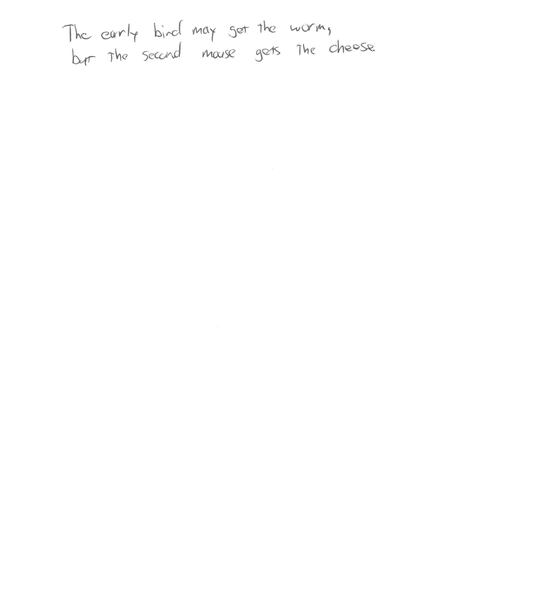 The early bird may get the worm,
but the second mouse gets the cheese